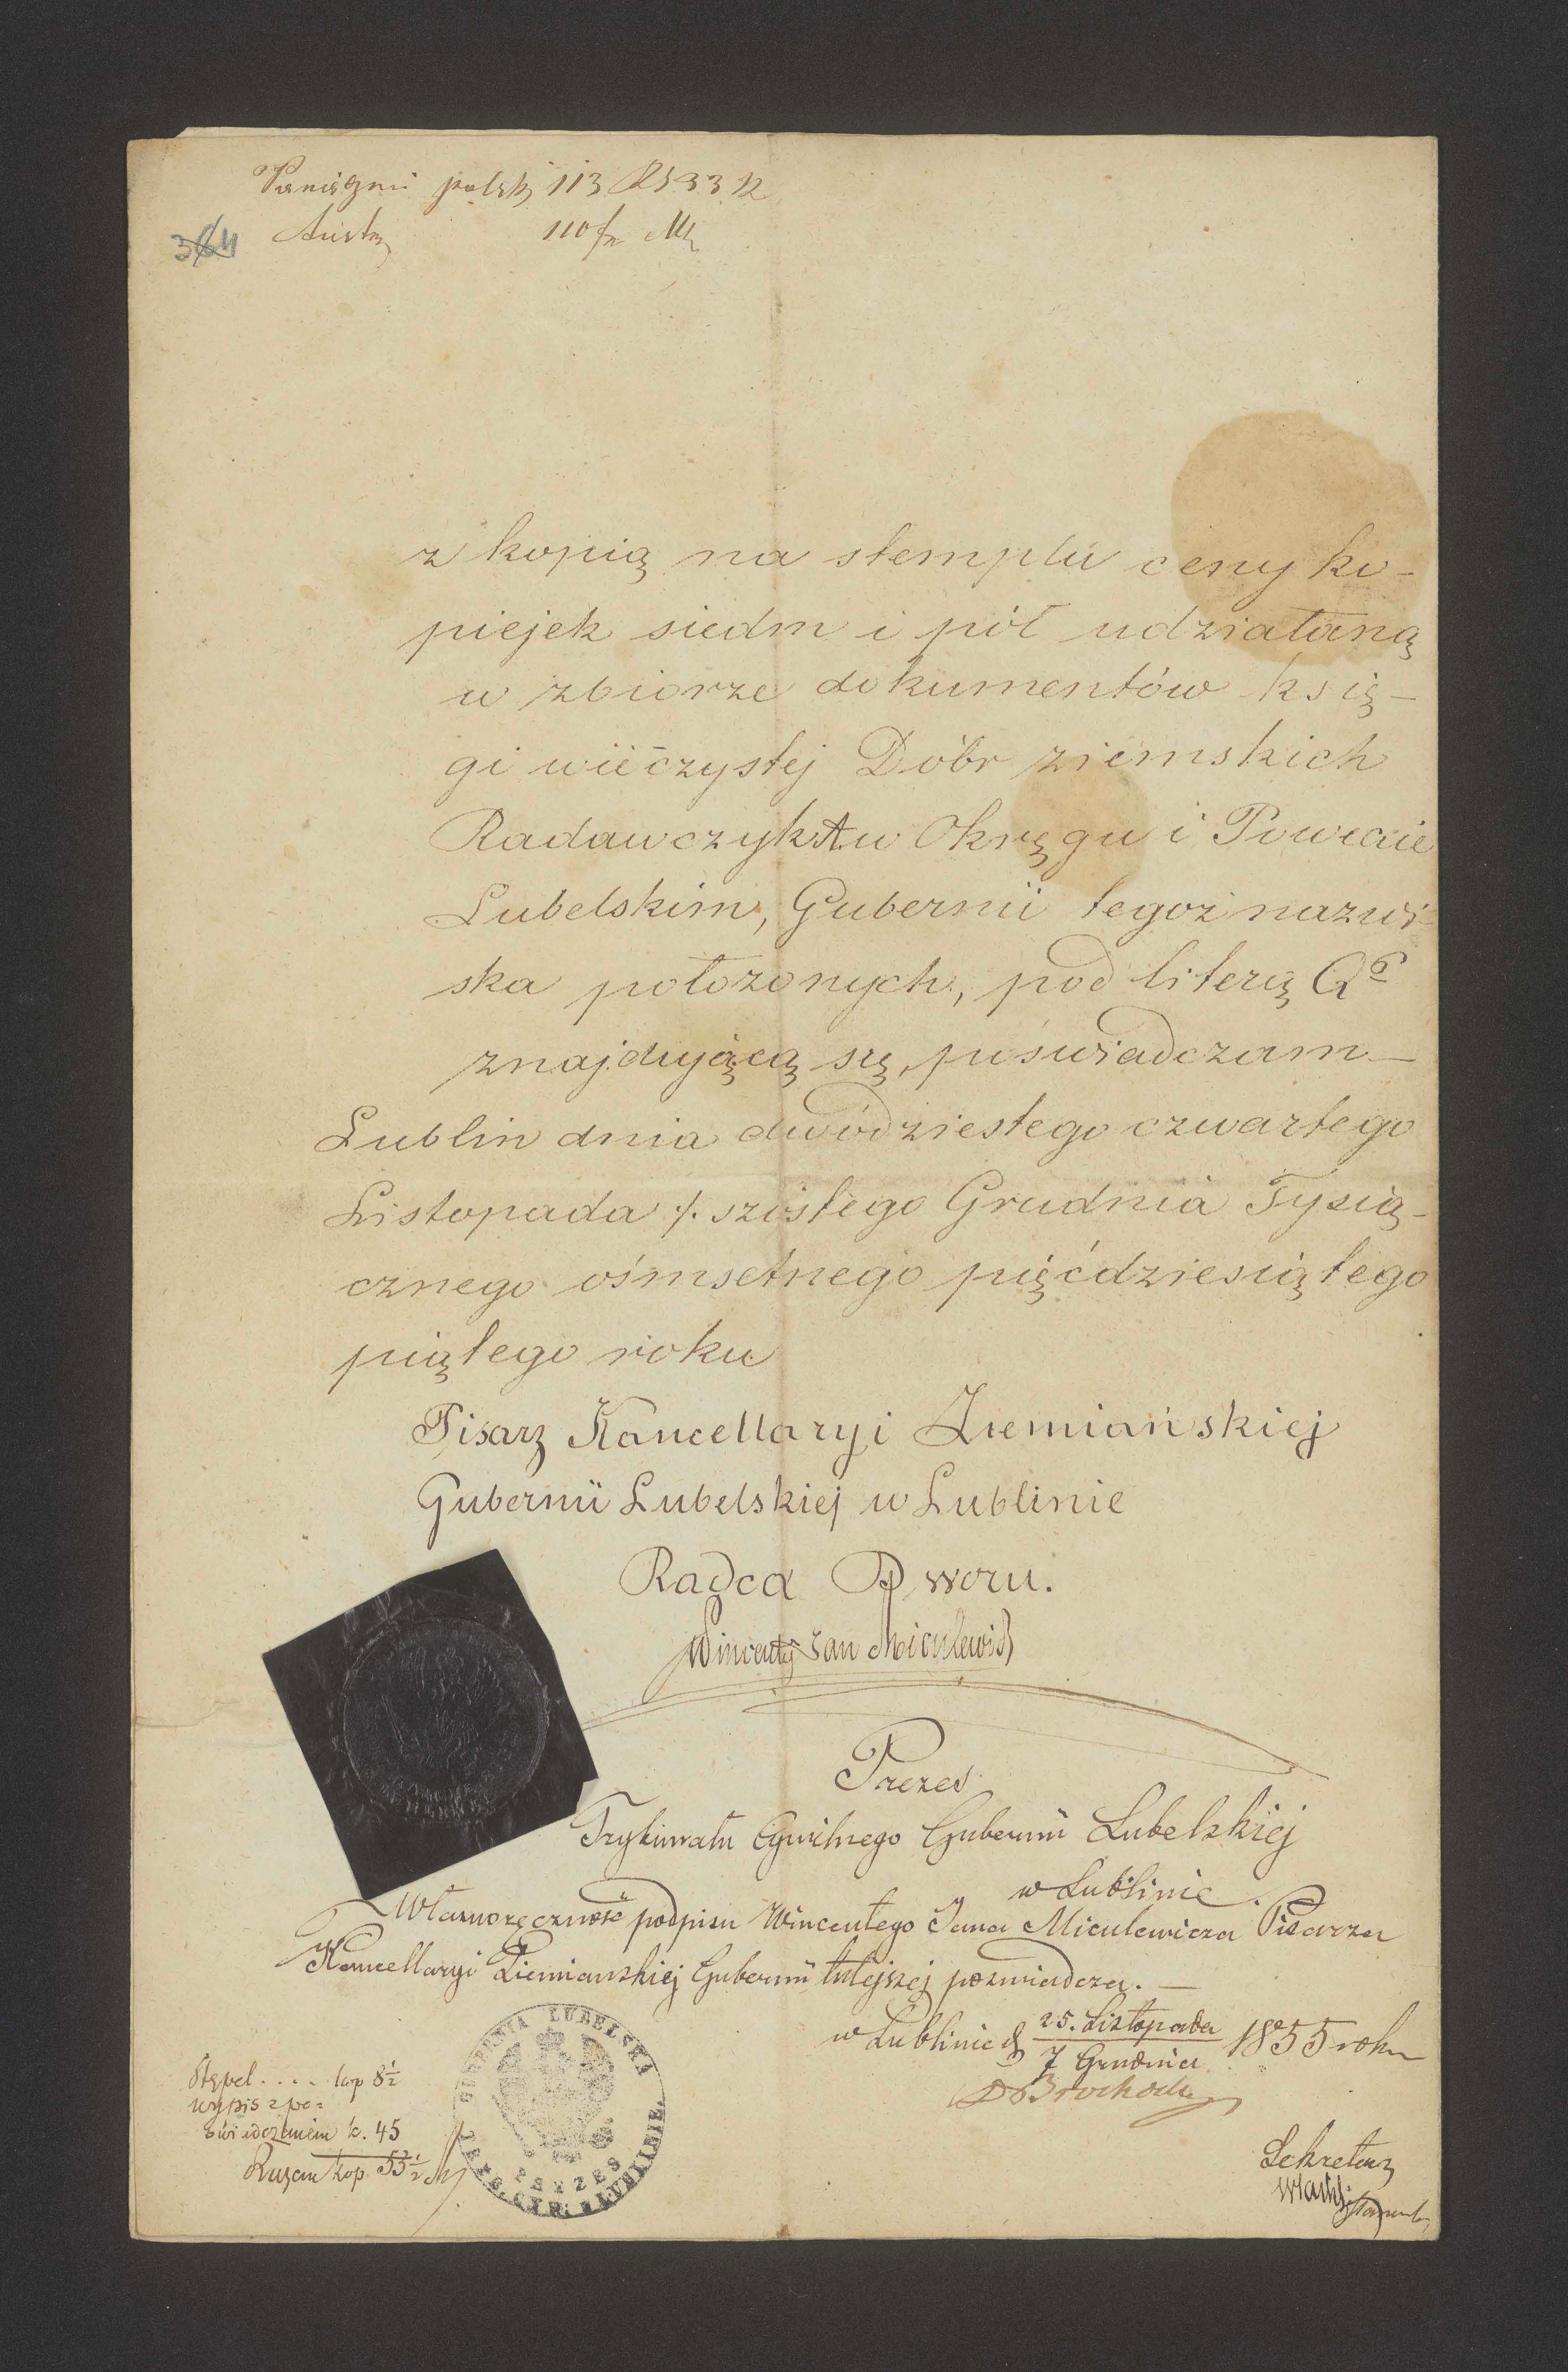 polskj 113
Austr 110 fr
z kopią na stemplu ceny ko-
piejek siedm i pół udziałaną
w zbiorze dokumentów księ-
gi wiéczystej Dóbr ziemskich
Radawczyk A w Okręgu i Powiecie
Lubelskim, Gubernii tegoż nazwi-
ska położonych, pod literą Q
znajdującą się, poświadczam —
Lublin dnia dwódziestego czwartego
Listopada /. szóstego Grudnia Tysią-
cznego ośmsetnego pięćdziesiątego
piątego roku
Pisarz Kancellaryi Ziemiańskiej
Gubernii Lubelskiej w Lublinie
Radca Dworu.
Wincenty Jan Miculewicz
Prezes
Trybunału Cywilnego Gubernii Lubelskiej
w Lublinie.
Własnoręczność podpisu Wincentego Jana Miculewicza Pisarza
Kancellaryi Ziemiańskiej Gubernii tutejszej poświadcza. —
w Lublinie d. 25. Listopada / 7 Grudnia 1855 roku
Stępel . . . . kop 8½
wypis z po=
świadczeniem k. 45
Razem kop. 53½
GUBERNIA LUBELSKA
PREZES
TRYB: CYW: W LUBLINIE.
Sekretarz